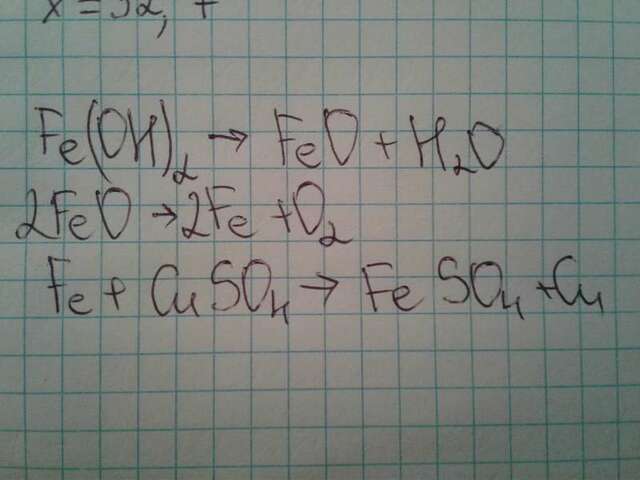 x = 32,
Fe(OH)₂ → FeO + H₂O
2FeO → 2Fe + O₂
Fe + CuSO₄ → FeSO₄ + Cu